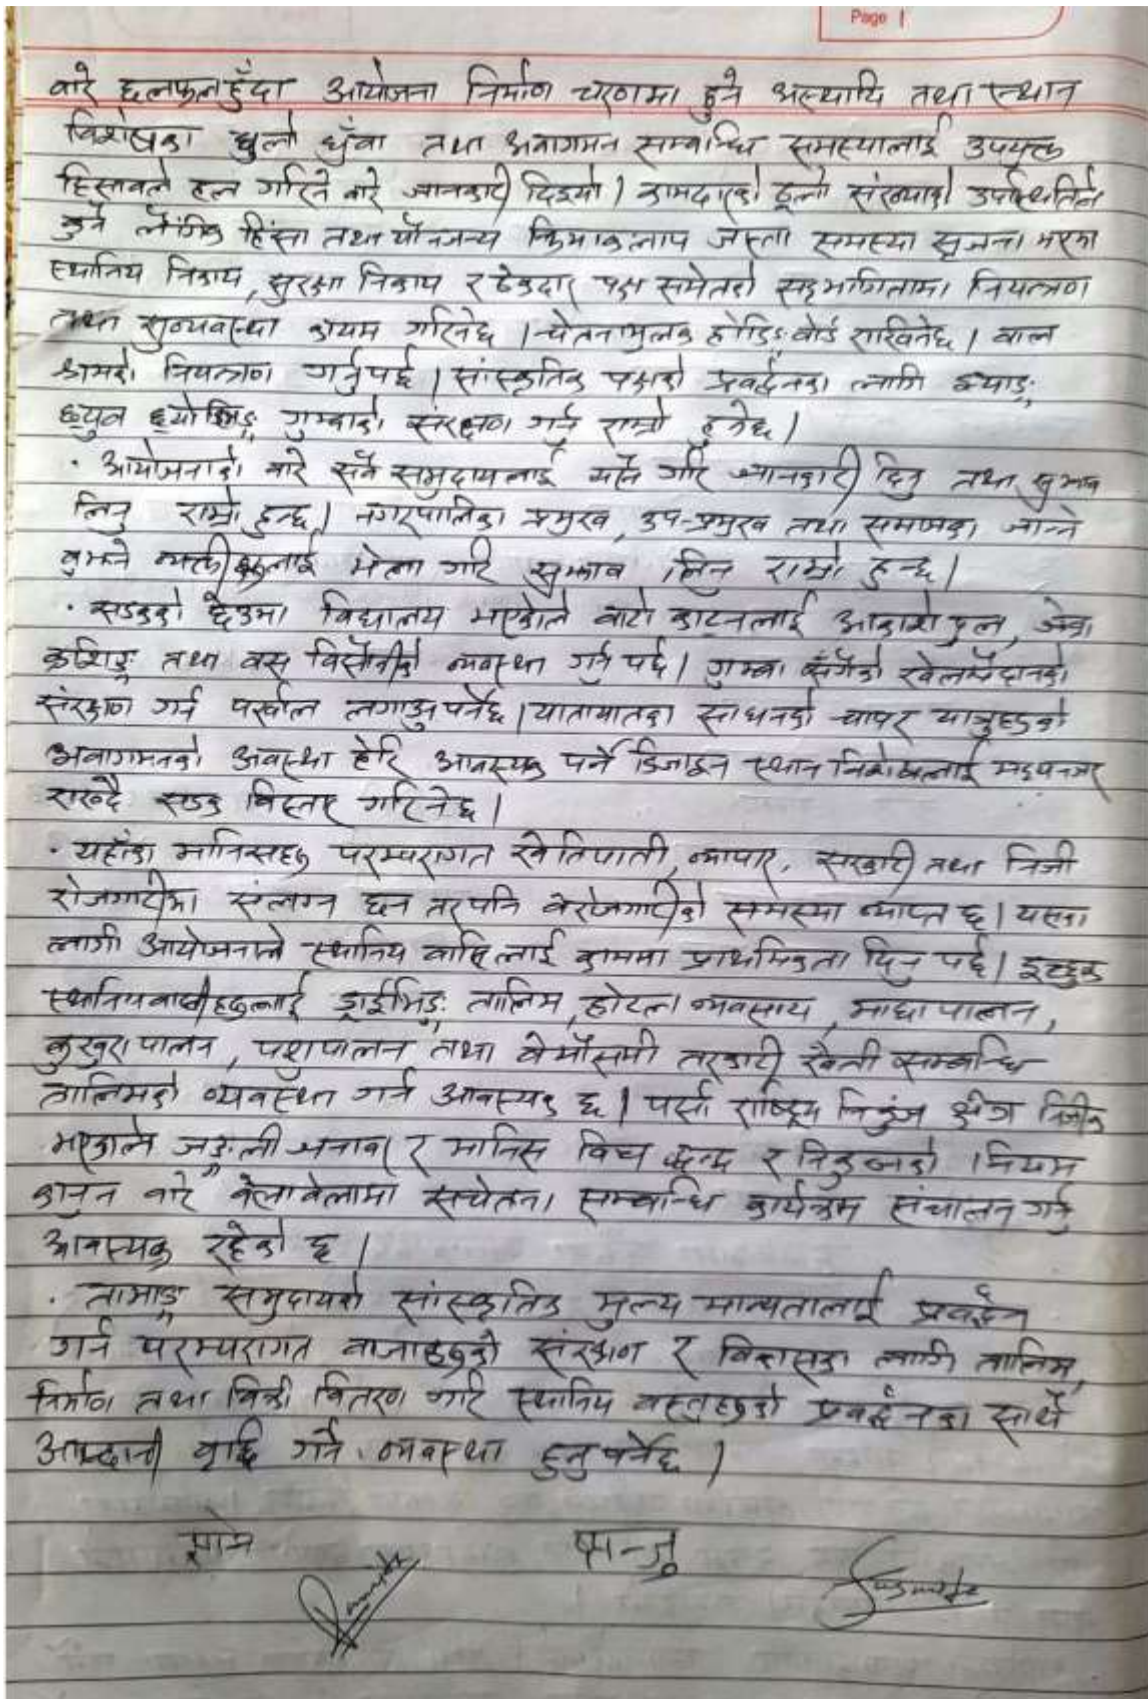 Page 1
बारे छलफल हुँदा आयोजना निर्माण चरणमा हुने अस्थायि तथा स्थान
विशेषका धुलो धुँवा तथा आवागमन सम्बन्धि समस्यालाई उपयुक्त
हिसाबले हल गरिने बारे जानकारी दिइयो । कामदारको ठूलो संख्याको उपस्थितिले
कुनै लैंगिक हिंसा तथा यौनजन्य क्रियाकलाप जस्ता समस्या सृजना भएमा
स्थानिय निकाय, सुरक्षा निकाय र ठेकदार पक्ष समेतको सहभागितामा नियन्त्रण
तथा सुव्यवस्था कायम गरिनेछ । चेतनामुलक होर्डिङ बोर्ड राखिनेछ । बाल
श्रमको नियन्त्रण गर्नुपर्छ । सांस्कृतिक पक्षको प्रवर्द्धनका लागि
गुम्बाको संरक्षण गर्न राम्रो हुनेछ ।
· आयोजनाको बारे सबै समुदायलाई यसै गरि जानकारी दिनु तथा सुझाव
लिनु राम्रो हुन्छ । नगरपालिका प्रमुख, उप-प्रमुख तथा समाजका जान्ने
बुझ्ने व्यक्तीहरुलाई भेला गरि सुझाव लिन राम्रो हुन्छ ।
· सडकको छेउमा विद्यालय भएकोले बाटो काट्नलाई आकाशे पुल, जेब्रा
क्रशिङ्ग तथा बस बिसौनीको व्यवस्था गर्नु पर्छ । गुम्बा सँगैको खेलमैदानको
संरक्षण गर्न पर्खाल लगाउनुपर्नेछ । यातायातका साधनको चाप र यात्रुहरुको
आवागमनको अवस्था हेरि आवस्यक पर्ने डिजाइन स्थान विशेषलाई मध्यनजर
राख्दै सडक विस्तार गरिनेछ ।
· यहाँका मानिसहरु परम्परागत खेतिपाती, व्यापार, सरकारी तथा निजी
रोजगारीमा संलग्न छन तरपनि बेरोजगारीको समस्या व्याप्त छ । यसका
लागी आयोजनाले स्थानिय वासिलाई काममा प्राथमिकता दिनु पर्छ । इच्छुक
स्थानियवासीहरुलाई ड्राईभिङ्ग तालिम, होटल व्यवसाय, माछा पालन,
कुखुरा पालन, पशुपालन तथा बेमौसमी तरकारी खेती सम्बन्धि
तालिमको व्यवस्था गर्न आवस्यक छ । पर्सा राष्ट्रिय निकुंज क्षेत्र नजिक
भएकाले जङ्गली जनावर र मानिस बिच द्वन्द र निकुञ्जको नियम
कानुन बारे बेलाबेलामा सचेतना सम्बन्धि कार्यक्रम संचालन गर्नु
आवस्यक रहेको छ ।
· तामाङ्ग समुदायको सांस्कृतिक मुल्य मान्यतालाई प्रवर्द्धन
गर्न परम्परागत बाजाहरुको संरक्षण र विकासका लागि तालिम,
निर्माण तथा बिक्री वितरण गरि स्थानिय वस्तुहरुको प्रवर्द्धनका साथै
आम्दानी वृद्धि गर्ने व्यवस्था हुनुपर्नेछ ।